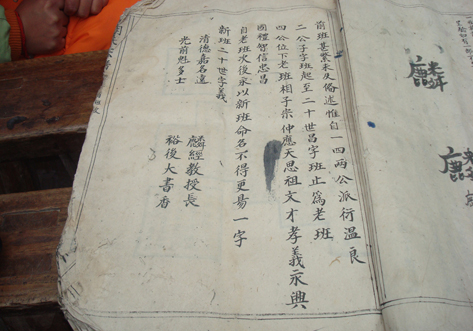 前班甚繁未及備述惟自一四兩公派衍溫良
二公子字班起至二十世昌字班止為老班
四公位下老班相子宗仲應天思祖文才孝義永興
國禮智信忠昌
自老班次後永以新班命名不得更易一字
新班二十世字義
清德嘉名遠 麟經教授長
光前魁多士 裕後大書香
麟
麟